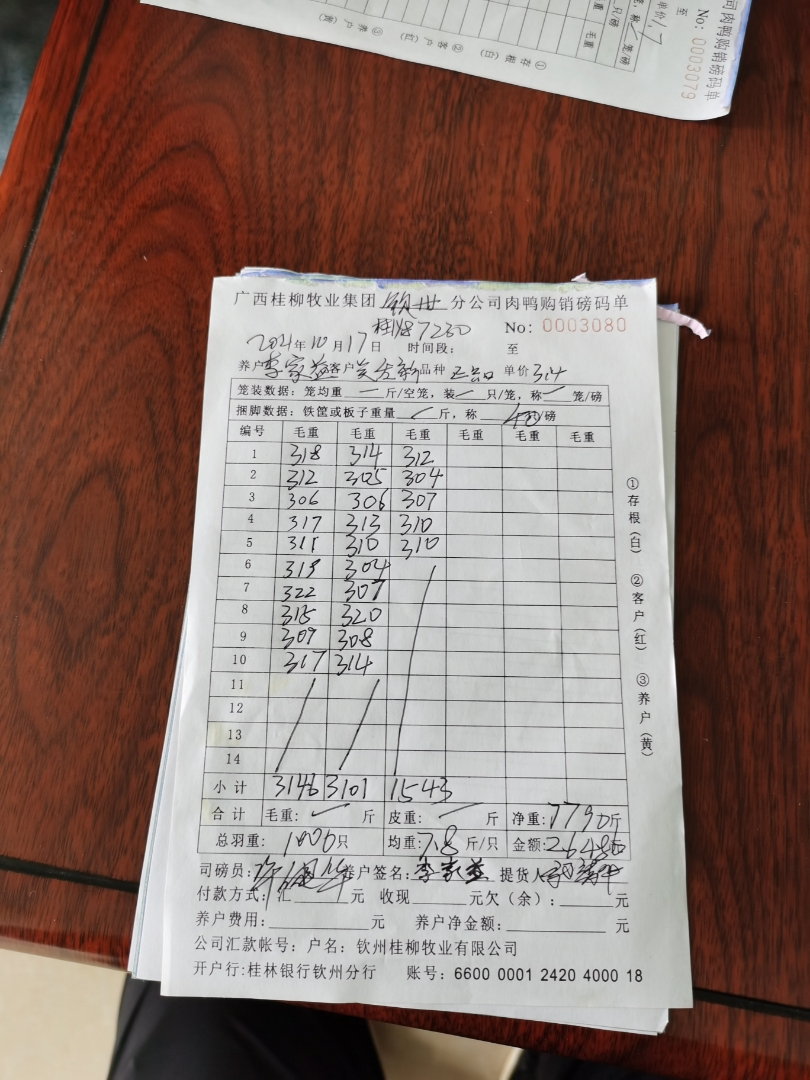 司肉鸭购销磅码单
No: 0003079
至
单价1.7
只/磅
笼/磅
毛重
毛重
①存根(白) ②客户(红) ③养户(黄)
广西桂柳牧业集团 钦州 分公司肉鸭购销磅码单
7230 No: 0003080
2021年10月17日 时间段: 至
养户李家益客户 品种 单价3.14
笼装数据: 笼均重 一 斤/空笼, 装 一 只/笼, 称 一 笼/磅
捆脚数据: 铁筐或板子重量 斤, 称 40只/磅
编号 毛重 毛重 毛重 毛重 毛重 毛重
1 318 314 312
2 312 305 304
3 306 306 307
4 317 313 310
5 311 310 310
6 313 304
7 322 307
8 315 320
9 309 308
10 317 314
11
12
13
14
小计 3146 3101 1543
合计 毛重: 斤 皮重: 斤 净重: 7790斤
总羽重: 1000只 均重: 7.8斤/只 金额: 26486
司磅员: 养户签名: 李家益 提货人
付款方式: 汇 元 收现 元欠(余): 元
养户费用: 元 养户净金额: 元
公司汇款帐号: 户名: 钦州桂柳牧业有限公司
开户行:桂林银行钦州分行 账号: 6600 0001 2420 4000 18
①存根(白) ②客户(红) ③养户(黄)